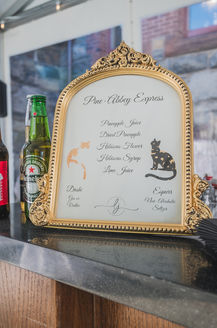 Pine-Abbey Express
Pineapple Juice
Dried Pineapple
Hibiscus Flower
Hibiscus Syrup
Lime Juice
Dásle
Gin or
Vodka
Espurr
Non-Alcoholic
Seltzer
Heineken